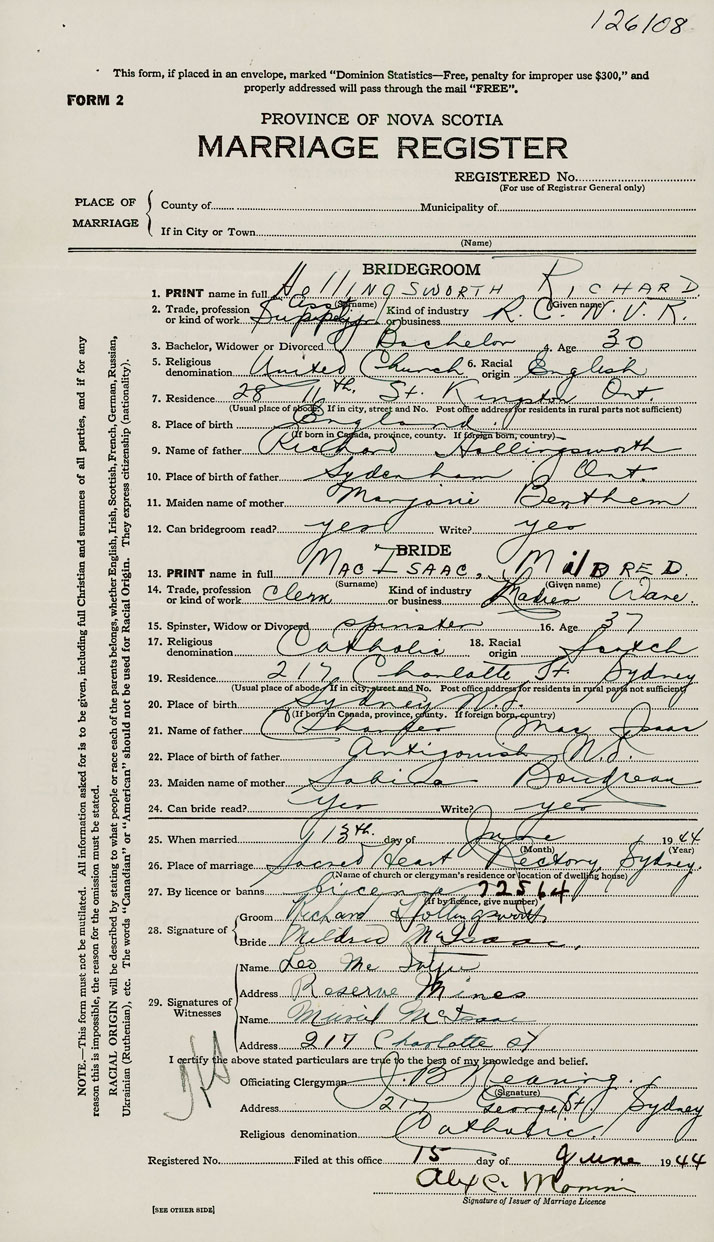 126108
This form, if placed in an envelope, marked “Dominion Statistics—Free, penalty for improper use $300,” and
properly addressed will pass through the mail “FREE”.
FORM 2
PROVINCE OF NOVA SCOTIA
MARRIAGE REGISTER
REGISTERED No.
(For use of Registrar General only)
PLACE OF MARRIAGE
County of Municipality of
If in City or Town
(Name)
BRIDEGROOM
1. PRINT name in full HOLLINGSWORTH RICHARD
(Surname) (Given name)
2. Trade, profession or kind of work Asst Supply Kind of industry or business R.C.N.V.R.
3. Bachelor, Widower or Divorced Bachelor 4. Age 30
5. Religious denomination United Church 6. Racial origin English
7. Residence 28 11th St. Kingston Ont.
(Usual place of abode. If in city, street and No. Post office address for residents in rural parts not sufficient)
8. Place of birth England.
(If born in Canada, province, county. If foreign born, country)
9. Name of father Richard Hollingsworth
10. Place of birth of father Sydenham Ont.
11. Maiden name of mother Marjorie Benthem
12. Can bridegroom read? yes Write? yes
BRIDE
13. PRINT name in full MACISAAC, MILDRED.
(Surname) (Given name)
14. Trade, profession or kind of work Clerk Kind of industry or business Ladies Ware.
15. Spinster, Widow or Divorced spinster 16. Age 37
17. Religious denomination Catholic 18. Racial origin Scotch
19. Residence 217 Charlotte St. Sydney
(Usual place of abode. If in city, street and No. Post office address for residents in rural parts not sufficient)
20. Place of birth Sydney N.S.
(If born in Canada, province, county. If foreign born, country)
21. Name of father Mac Isaac
22. Place of birth of father Antigonish N.S.
23. Maiden name of mother Sabina Boudreau
24. Can bride read? Yes Write? yes
25. When married 13th. day of June 1944
(Month) (Year)
26. Place of marriage Sacred Heart Rectory, Sydney.
(Name of church or clergyman's residence or location of dwelling house)
27. By licence or banns licence 22564
(If by licence, give number)
28. Signature of
Groom Richard Hollingsworth
Bride Mildred McIsaac.
29. Signatures of Witnesses
Name Leo Mc Intyre
Address Reserve Mines
Name Muriel McIsaac
Address 217 Charlotte St
I certify the above stated particulars are true to the best of my knowledge and belief.
Officiating Clergyman J. B. Nearing.
(Signature)
Address 217 George St. Sydney
Religious denomination Catholic.
Registered No. Filed at this office 15 day of June 1944
Signature of Issuer of Marriage Licence
[SEE OTHER SIDE]
NOTE.—This form must not be mutilated. All information asked for is to be given, including full Christian and surnames of all parties, and if for any
reason this is impossible, the reason for the omission must be stated.
RACIAL ORIGIN will be described by stating to what people or race each of the parents belongs, whether English, Irish, Scottish, French, German, Russian,
Ukrainian (Ruthenian), etc. The words “Canadian” or “American” should not be used for Racial Origin. They express citizenship (nationality).